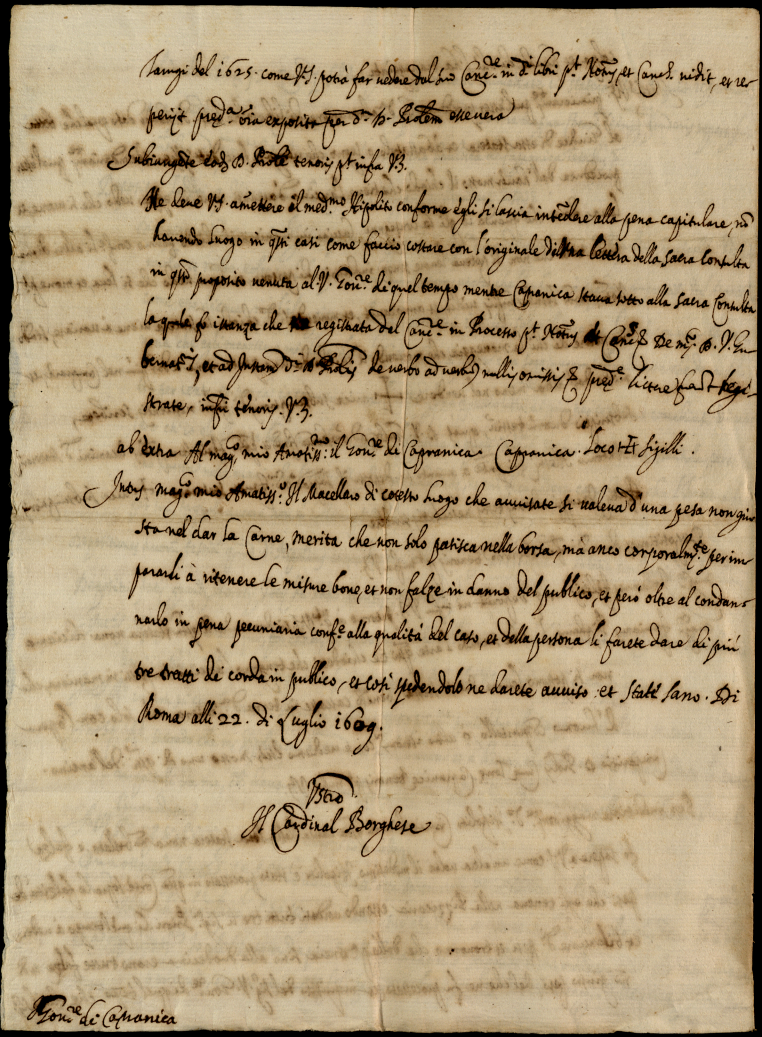 del 1625. come V.S. potrà far vedere dal suo Canc.re in d.i libri p.t Not.s, et Canc.s vidit, et re-
periit pred.a exposita per d. D. esse vera
Subiungente eod. D. tenoris p.t infra V.3.
Ne deve V.S. amettere il med.mo Hipolito conforme egli si lascia intendere alla pena capitulare, nō
havendo luogo in q̄sti casi come faccio costare con l'originale di una lettera della Sacra Consulta
in q̄sto proposito venuta al V. Gov.re di quel tempo mentre Capranica stava sotto alla Sacra Consulta
la quale fo istanza che registrata dal Canc.re in Processo p.t Not.s et Canc.s De m.to D. V. Gu-
bernat.s, et ad Instan. D. de verbo ad verbū nullis omissis pred.e licterę fuit regi-
strate, tenoris. V.3.
ab extra Al mag.co mio Amatiss.mo il Gov.re di Capranica. Capranica. Loco + Sigilli.
Intus mag.co mio Amatiss.o Il Macellaro di cotesto luogo che avvisate si valeva d'una pesa non giu-
sta nel dar la Carne, merita che non solo patisca nella borsa, mà anco corporalm.te per im-
pararli à ritenere le misure bone, et non false in danno del publico, et però oltre al condan-
narlo in pena pecuniaria conf.e alla qualità del caso, et della persona li farete dare di più
tre tratti di corda in publico, et così spedendolo ne darete avviso et State Sano. Di
Roma alli 22. di Luglio 1609.
Vstro
Il Cardinal Borghese
Gov.re di Capranica